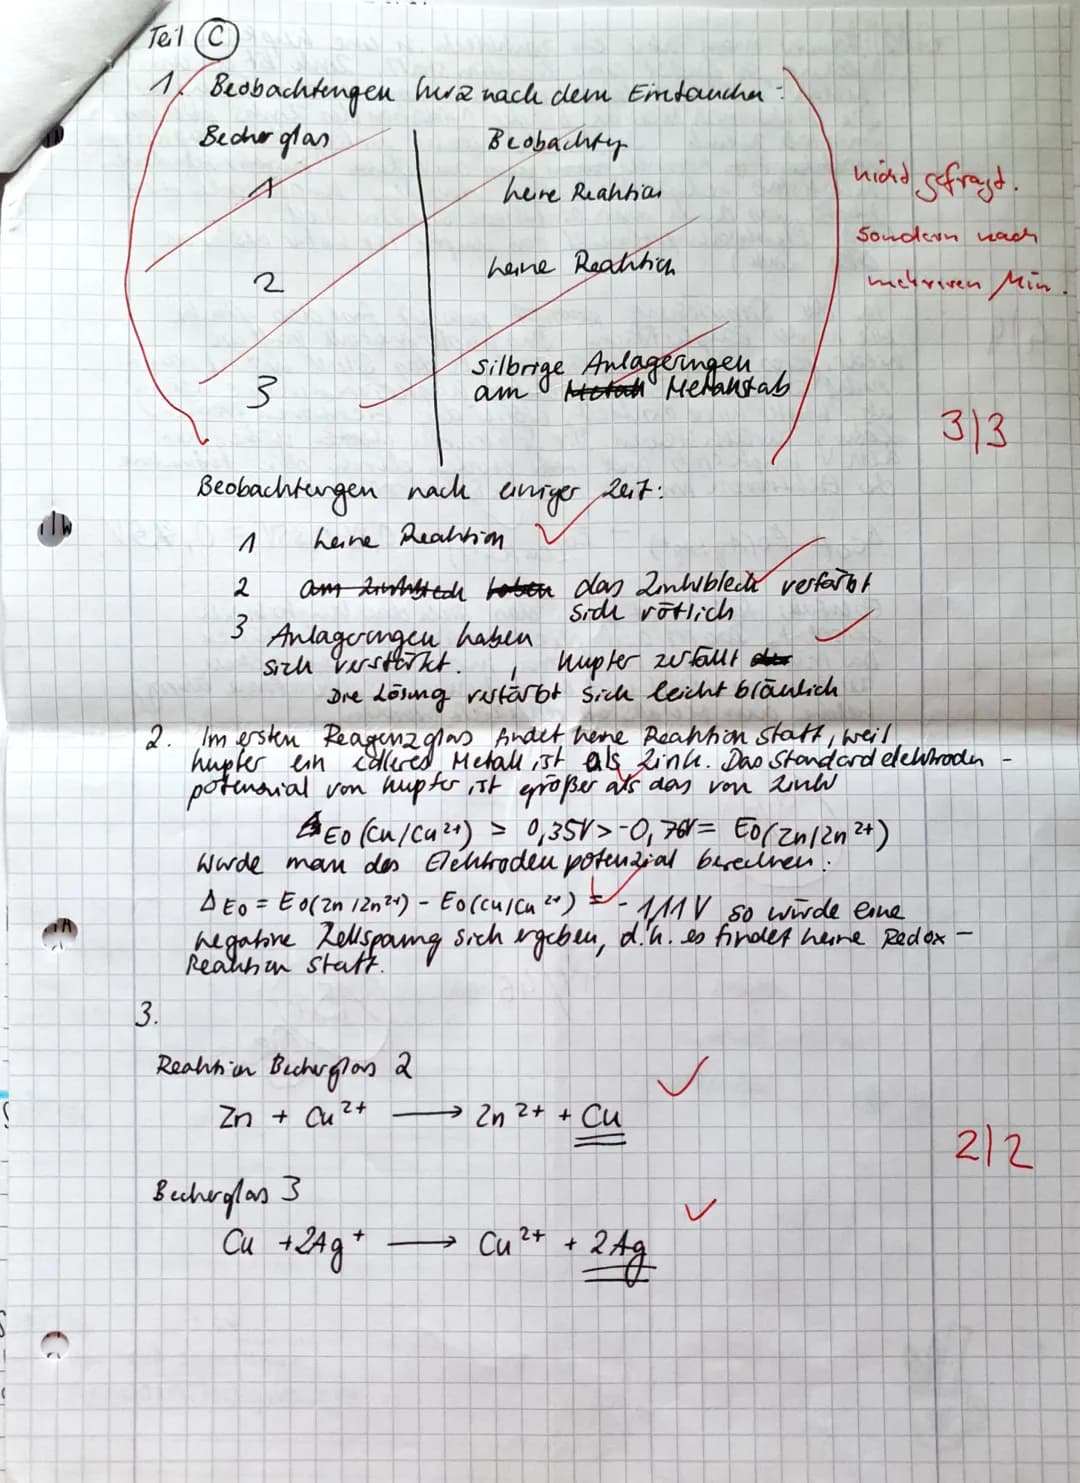 Teil C
1. Beobachtungen kurz nach dem Eintauchen:
Becherglas Beobachtung
1 keine Reaktion
nicht gefragt.
sondern nach
mehreren Min.
2 keine Reaktion
3 silbrige Anlagerungen
am Metall Metallstab
3/3
Beobachtungen nach einiger Zeit:
1 keine Reaktion
2 am Zinkblech haben das Zinkblech verfärbt
sich rötlich
3 Anlagerungen haben
sich verstärkt. , Kupfer zerfällt
Die Lösung verfärbt sich leicht bläulich
2. Im ersten Reagenzglas findet keine Reaktion statt, weil
Kupfer ein edleres Metall ist als Zink. Das Standardelektroden-
potenzial von Kupfer ist größer als das von Zink
E0 (Cu/Cu2+) > 0,35V > -0,76V = E0(Zn/Zn2+)
Würde man das Elektrodenpotenzial berechnen:
ΔE0 = E0(Zn/Zn2+) - E0(Cu/Cu2+) = -1,11V so würde eine
negative Zellspannung sich ergeben, d.h. es findet keine Redox-
Reaktion statt.
3.
Reaktion Becherglas 2
Zn + Cu2+ → Zn2+ + Cu
2/2
Becherglas 3
Cu + 2Ag+ → Cu2+ + 2Ag